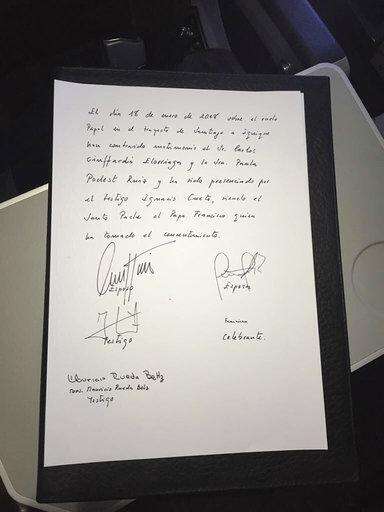 El día 18 de enero de 2018 sobre el vuelo
Papal en el trayecto de Santiago a Iquique
han contraído matrimonio el Sr. Carlos
Ciuffardi Elorriaga y la Sra. Paula
Podest Ruiz y ha sido presenciado por
el testigo Ignacio Cueto, siendo el
Santo Padre el Papa Francisco quien
ha tomado el consentimiento.
Esposo
Esposa
Testigo
Franciscus
Celebrante.
Mauricio Rueda Beltz
Mons. Mauricio Rueda Beltz
Testigo